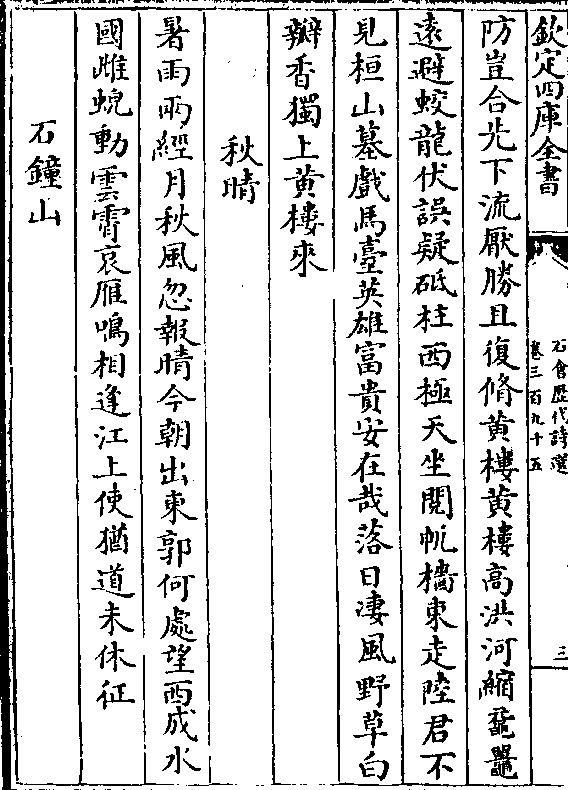 欽定四庫全書
石倉歴代詩選
卷三百九十五
三
防豈合先下流厭勝且復脩黄樓黄樓高洪河縮黿鼉
遠避蛟龍伏誤疑砥柱西極天坐閲帆檣東走陸君不
見桓山墓戲馬臺英雄富貴安在哉落日凄風野草白
瓣香獨上黄樓來
秋晴
暑雨兩經月秋風忽報晴今朝出東郭何處望西成水
國雌蜺動雲霄哀雁鳴相逢江上使猶道未休征
石鐘山